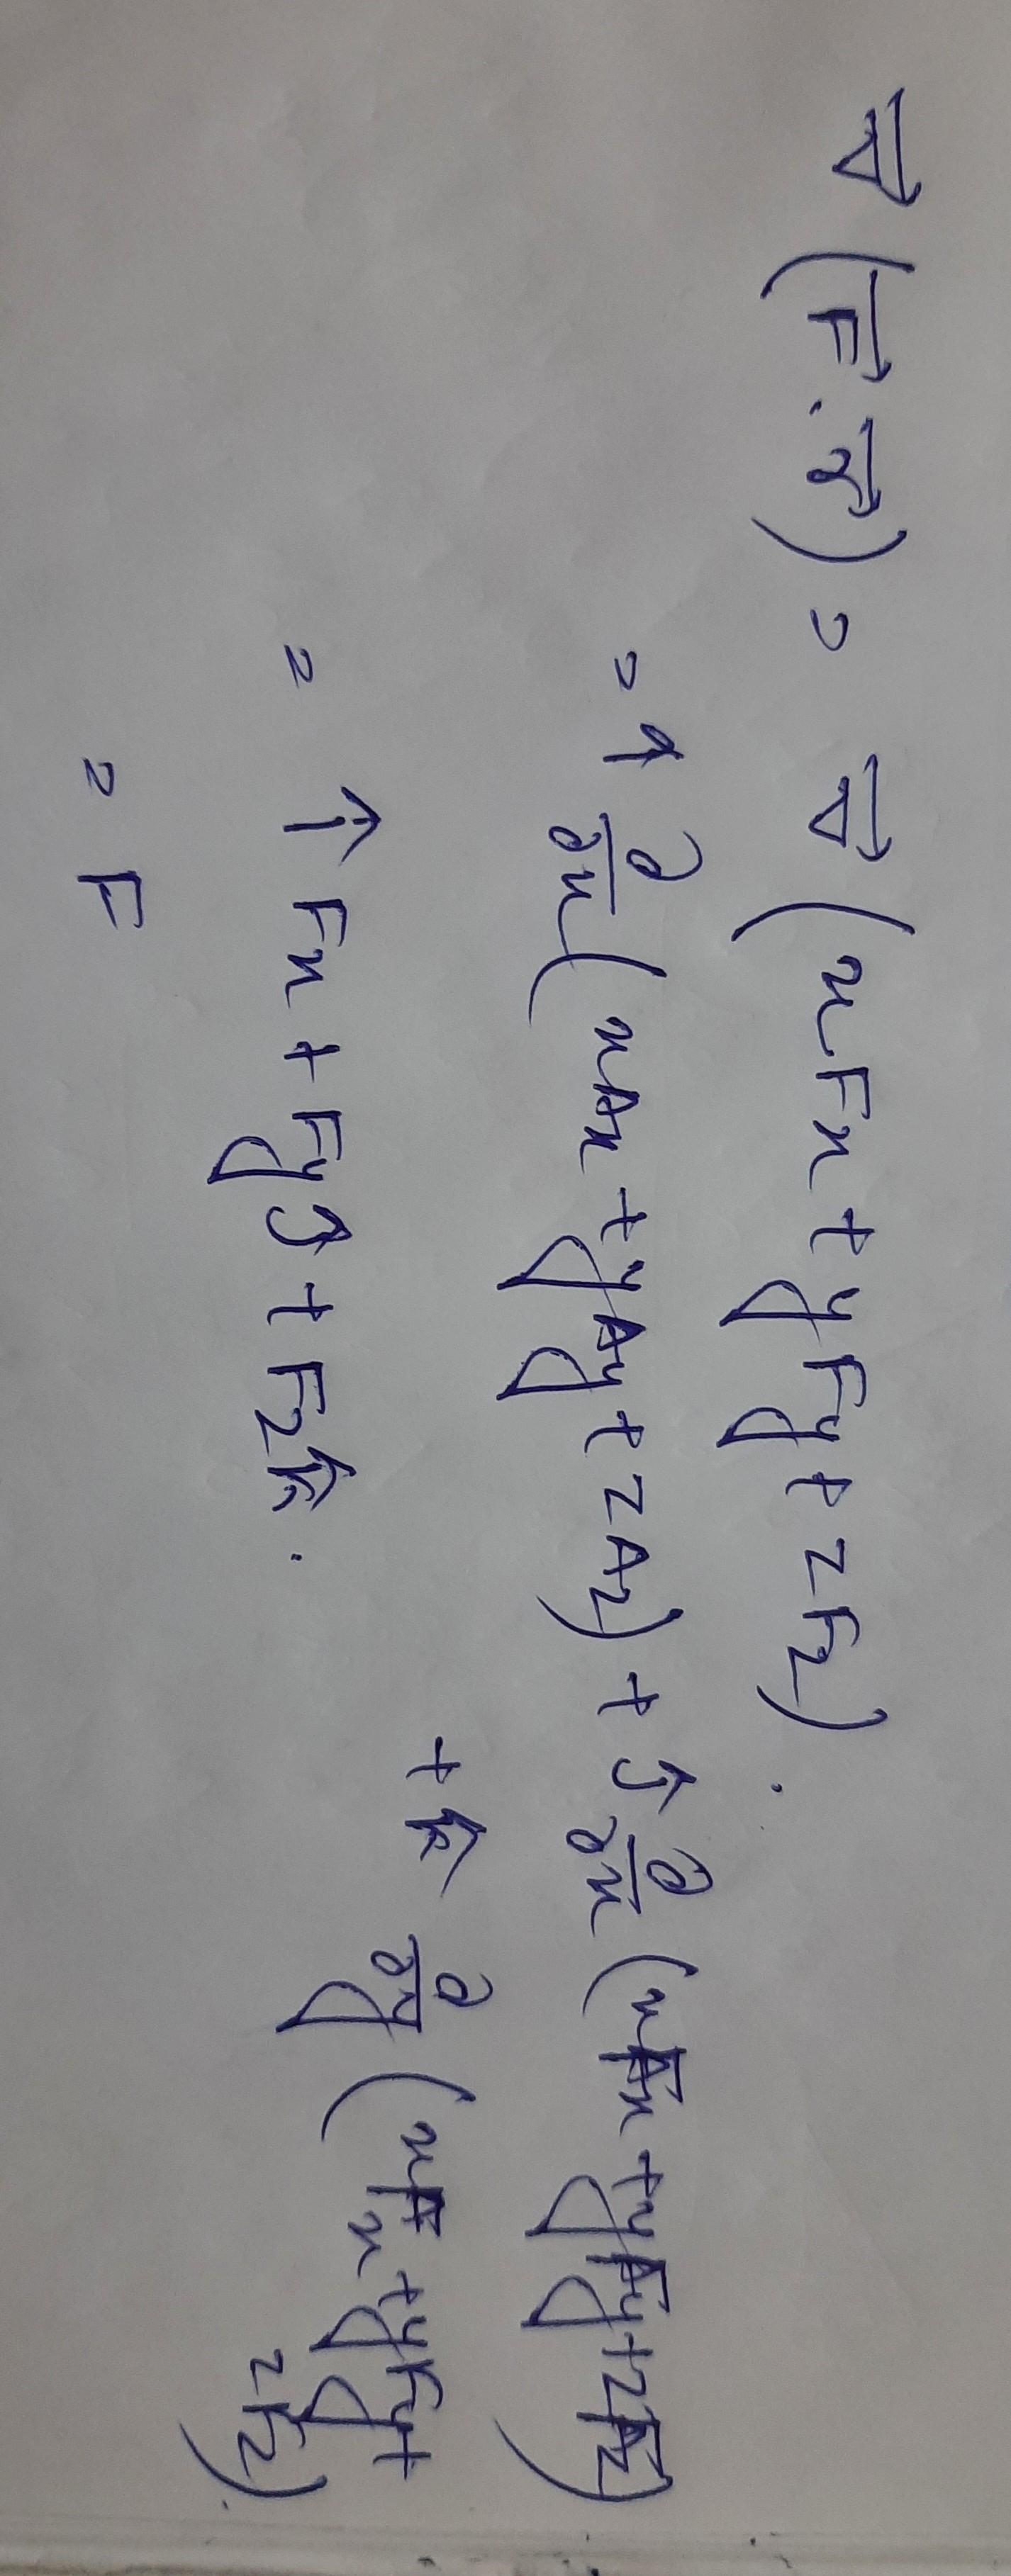 ∇⃗ (F⃗ . r⃗) = ∇⃗ (xFx + yFy + zFz) .
= î ∂/∂x (xAx + yAy + zAz) + ĵ ∂/∂x (xFx + yFy + zFz)
+ k̂ ∂/∂y (xFx + yFy +
zFz) .
= î Fx + Fy ĵ + Fz k̂ .
= F